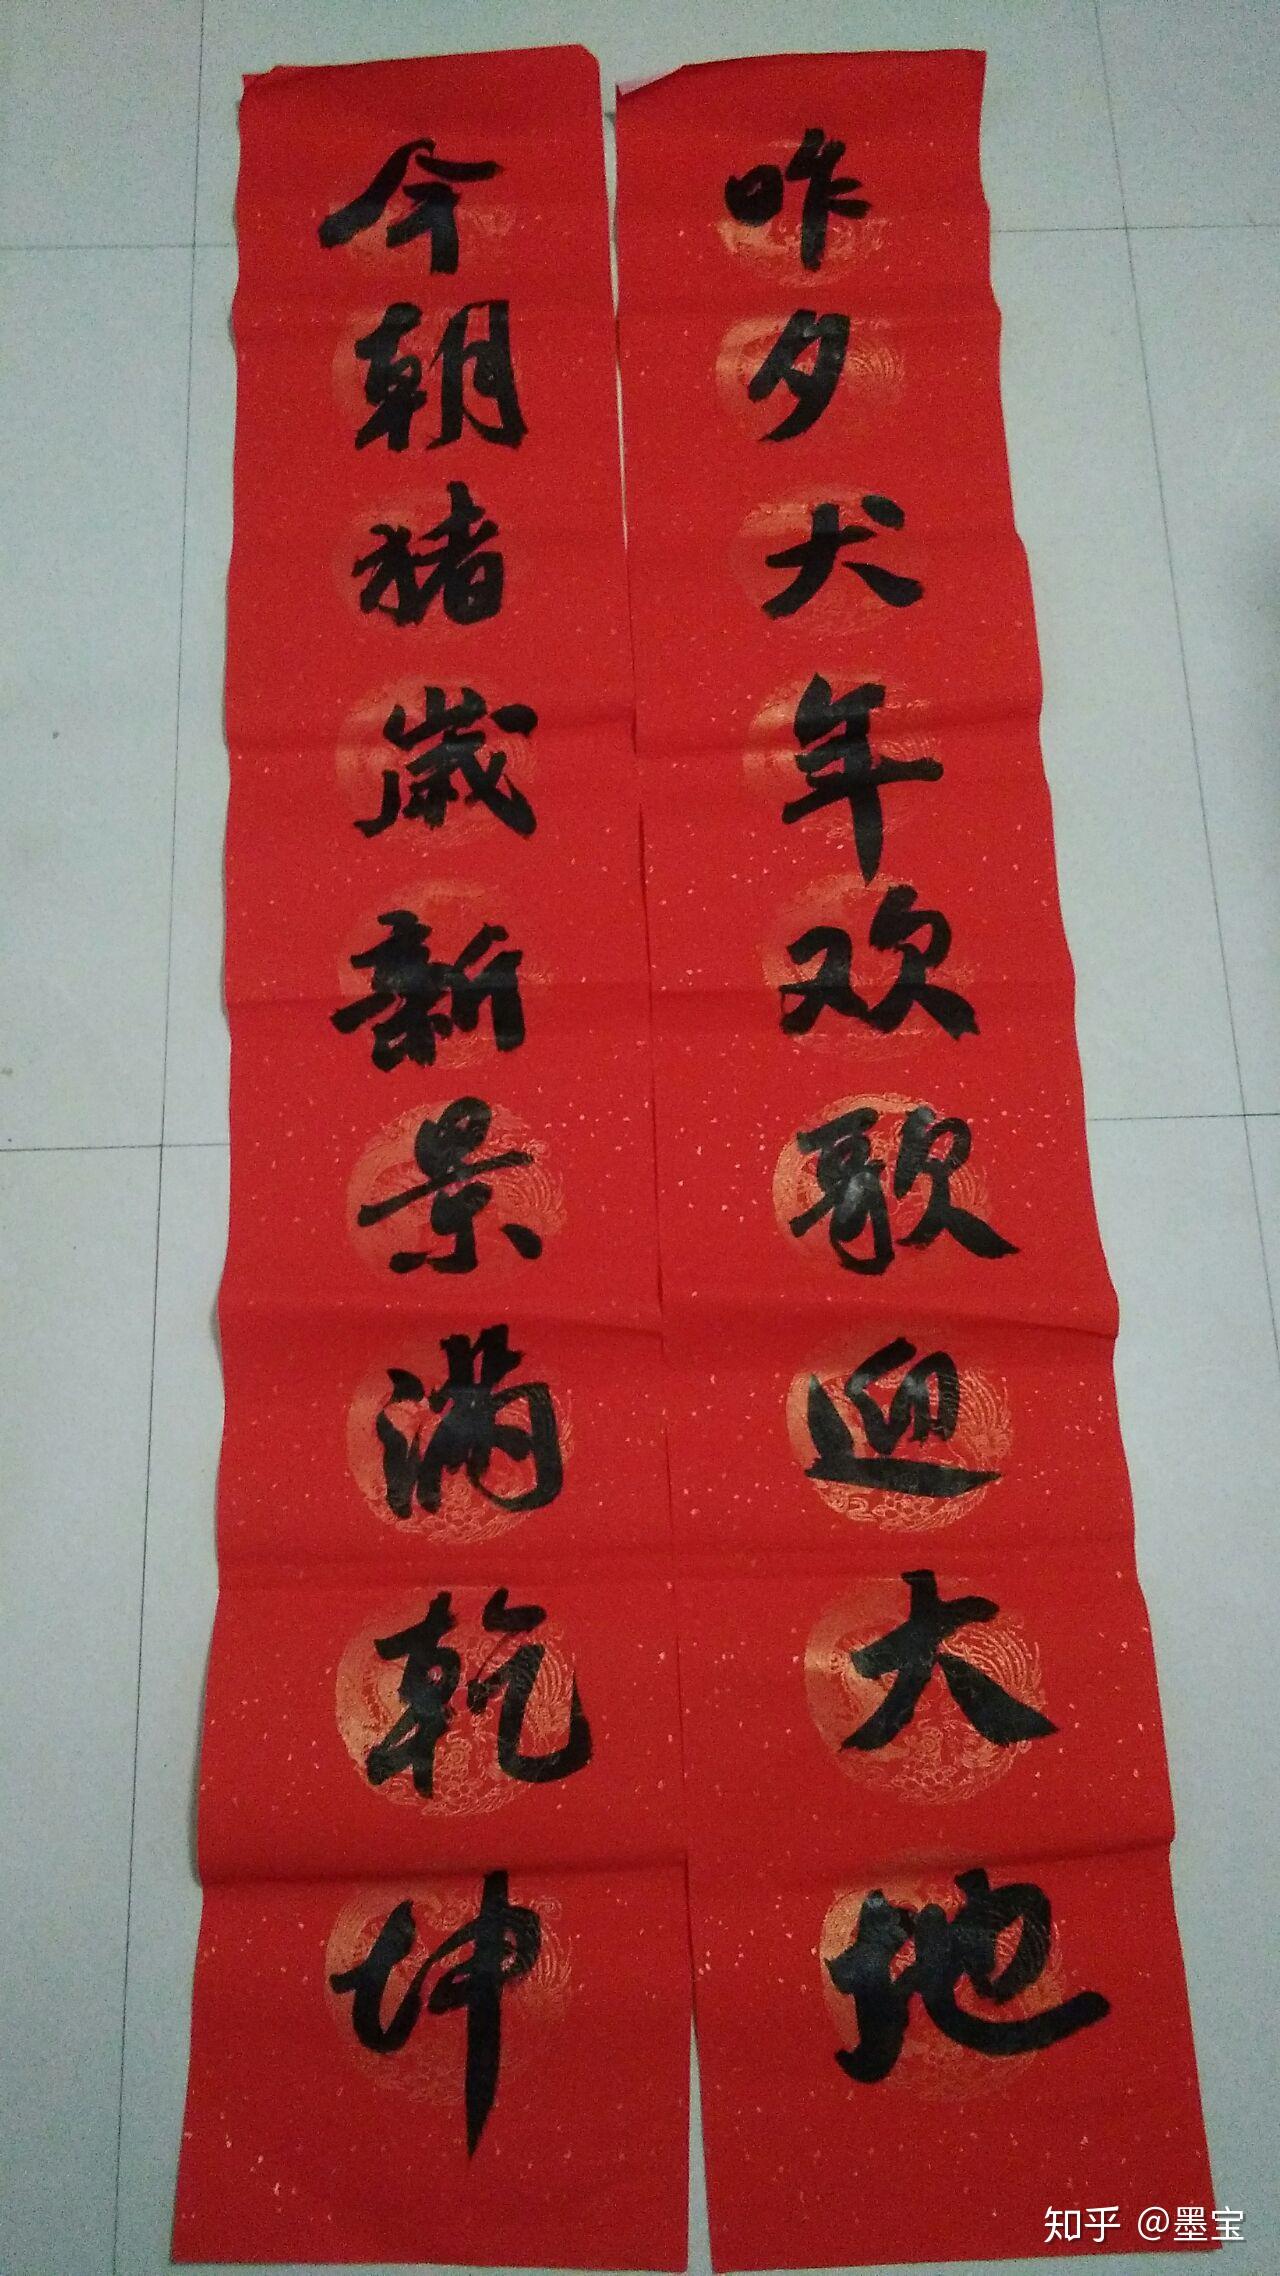 昨夕犬年欢歌迎大地
今朝猪歳新景满乾坤
知乎 @墨宝